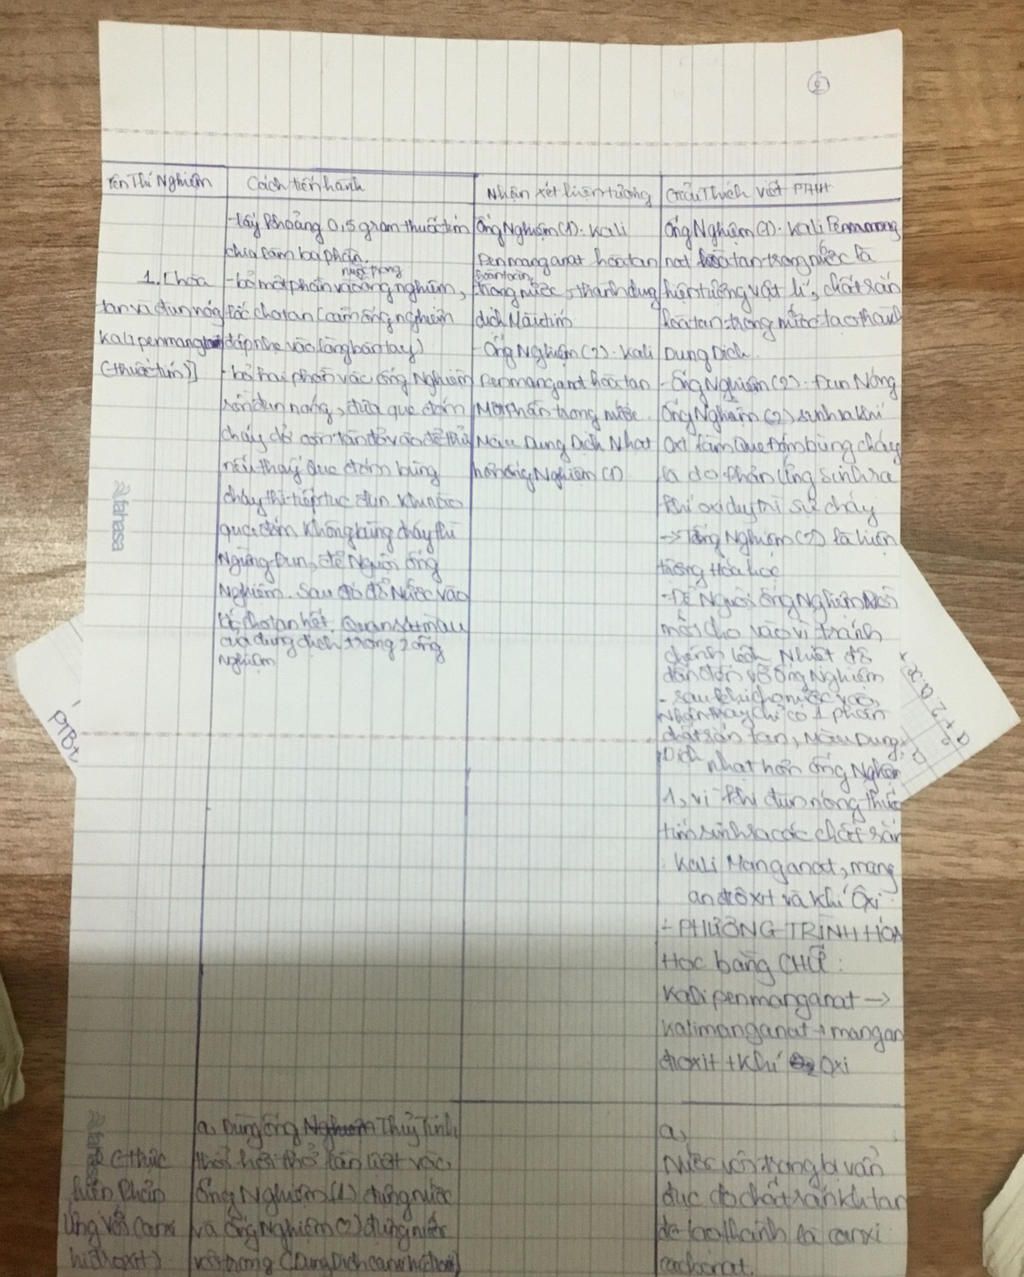 2
Tên Thí Nghiệm
Cách tiến hành
Nhận xét hiện tượng
Giải Thích viết PTHH
1. (hòa
tan và đun nóng
kali penmanganat
(thuốc tím)]
-Lấy khoảng 0,5 gram thuốc tím
chia làm ba phần.
nước trong
- bỏ một phần vào ống nghiệm,
lắc cho tan (cầm ống nghiệm
đập nhẹ vào lòng bàn tay)
- bỏ hai phần vào ống Nghiệm
rồi đun nóng, đưa que đóm
cháy dở còn tàn đỏ vào để thử
nếu thấy que đóm bùng
cháy thì tiếp tục đun khi nào
que đóm không bùng cháy thì
Ngừng đun, để Nguội ống
Nghiệm. Sau đó đổ Nước vào
lắc cho tan hết. Quan sát màu
của dung dịch trong 2 ống
nghiệm
Ống Nghiệm (1). Kali
penmanganat hòa tan
hoàn toàn
trong nước → thành dung
dịch Màu tím
- Ống Nghiệm (2). Kali
penmanganat hòa tan
Một Phần trong nước
Màu Dung Dịch Nhạt
hơn ống Nghiệm (1)
Ống Nghiệm (1). Kali Penmanga
nat hòa tan trong nước là
hiện tượng vật lí, chất rắn
hòa tan trong nước tạo thành
Dung Dịch.
- Ống Nghiệm (2). Đun Nóng
Ống Nghiệm (2) sinh ra khí
Oxi làm Que đóm bùng cháy
là do phản ứng sinh ra
khí oxi duy trì sự cháy
→ Ống Nghiệm (2) là hiện
tượng Hóa học
- Để Nguội ống Nghiệm rồi
mới cho vào vì tránh
chênh lệch Nhiệt độ
dẫn đến vỡ ống Nghiệm
- Sau khi cho nước vào,
Nhận thấy chỉ có 1 phần
chất rắn tan, Màu Dung
Dịch nhạt hơn ống Nghiệm
1, vì khi đun nóng thuốc
tím sinh ra các chất rắn
Kali Manganat, mang
an điôxit và khí Ôxi
- PHƯƠNG TRÌNH HÓA
Học bằng CHỮ:
Kali penmanganat →
kali manganat + mangan
đioxit + khí Oxi
(thực
hiện Phản
ứng với canxi
hiđroxit)
a, Dùng ống Thủy Tinh
thổi hơi thở lần lượt vào
ống Nghiệm (1) đựng nước
và ống Nghiệm (2) đựng nước
vôi trong (Dung Dịch canxi hiđroxit)
a,
Nước vôi trong bị vẩn
đục do chất rắn không tan
đó tạo thành là canxi
cacbonat.
fahasa
fahasa
PTBZ